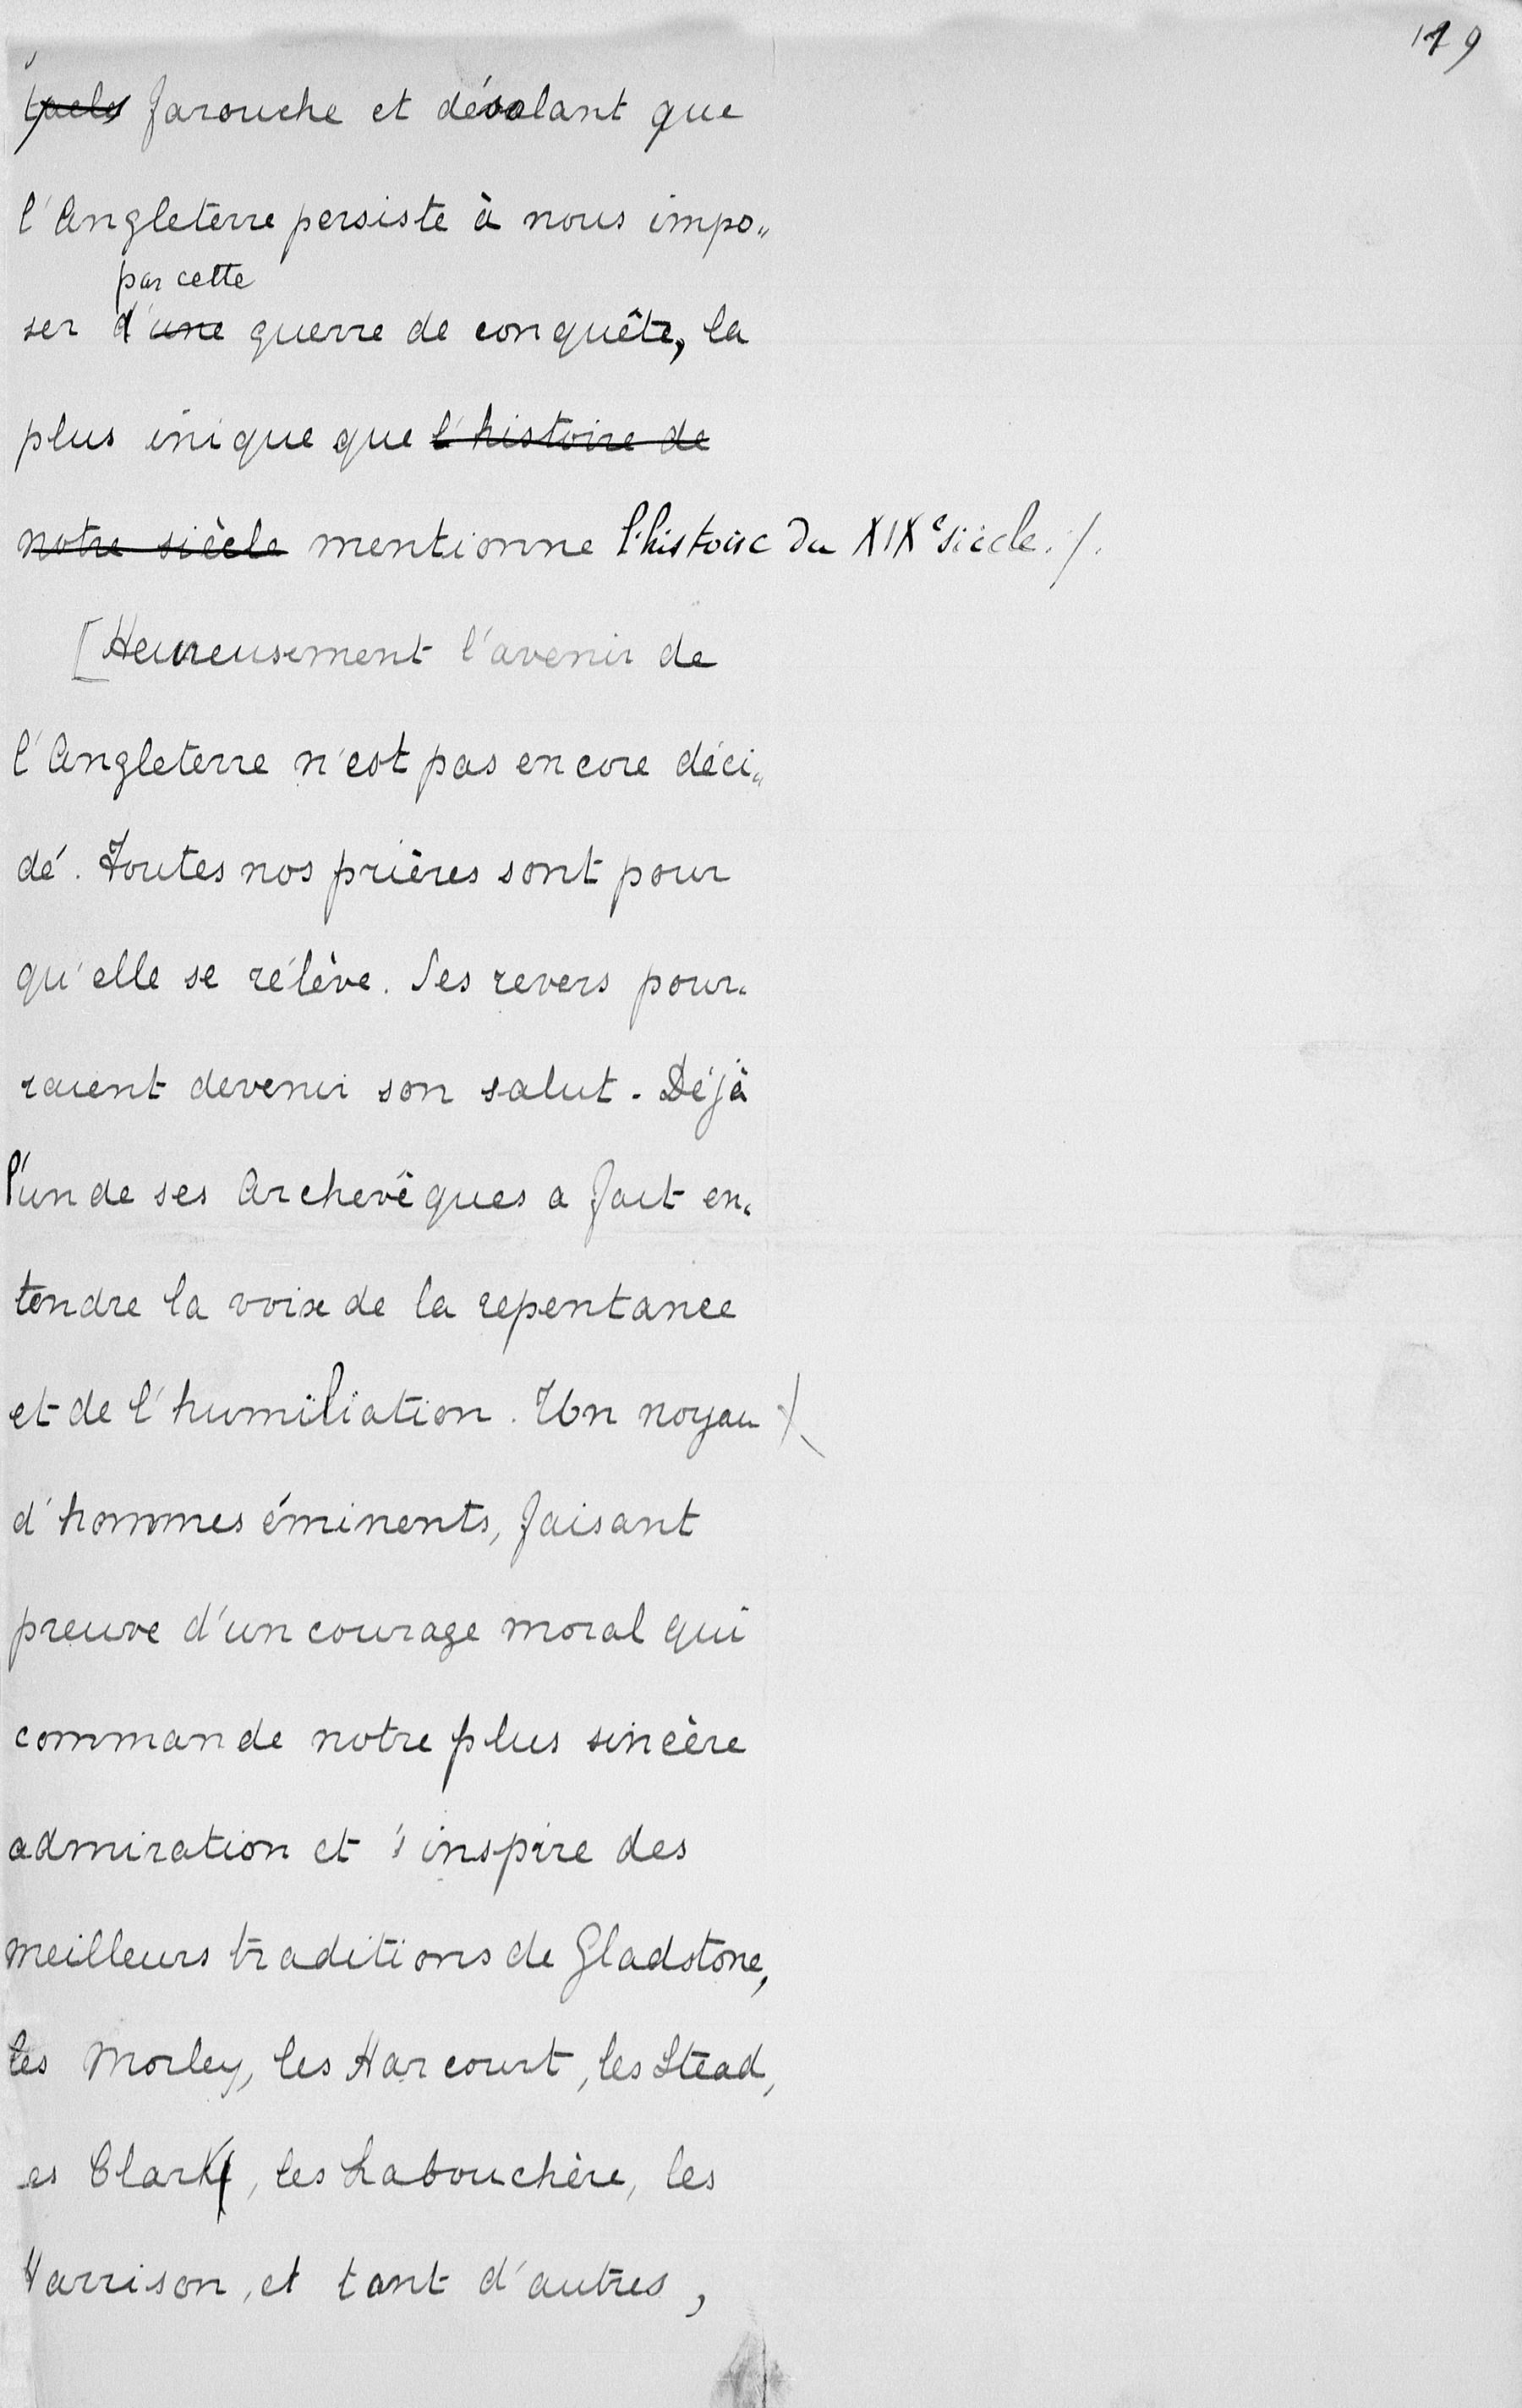 119
tacles farouche et désolant que
l'Angleterre persiste à nous impo„
par cette
ser d'une guerre de conquête, la
plus inique que l'histoire de
notre siècle mentionne l'histoire du XIXe siècle./.
[Heureusement l'avenir de
l'Angleterre n'est pas encore déci„
dé. Toutes nos prières sont pour
qu'elle se rélève. Ses revers pour„
raient devenir son salut. Déjà
l'un de ses Archevêques a fait en„
tendre la voix de la repentance
et de l'humiliation. Un noyau
d'hommes éminents, faisant
preuve d'un courage moral qui
commande notre plus sincère
admiration et s'inspire des
meilleurs traditions de Gladstone,
les Morley, les Harcourt, les Stead,
es Clark, les Labouchère, les
Harrison, et tant d'autres,